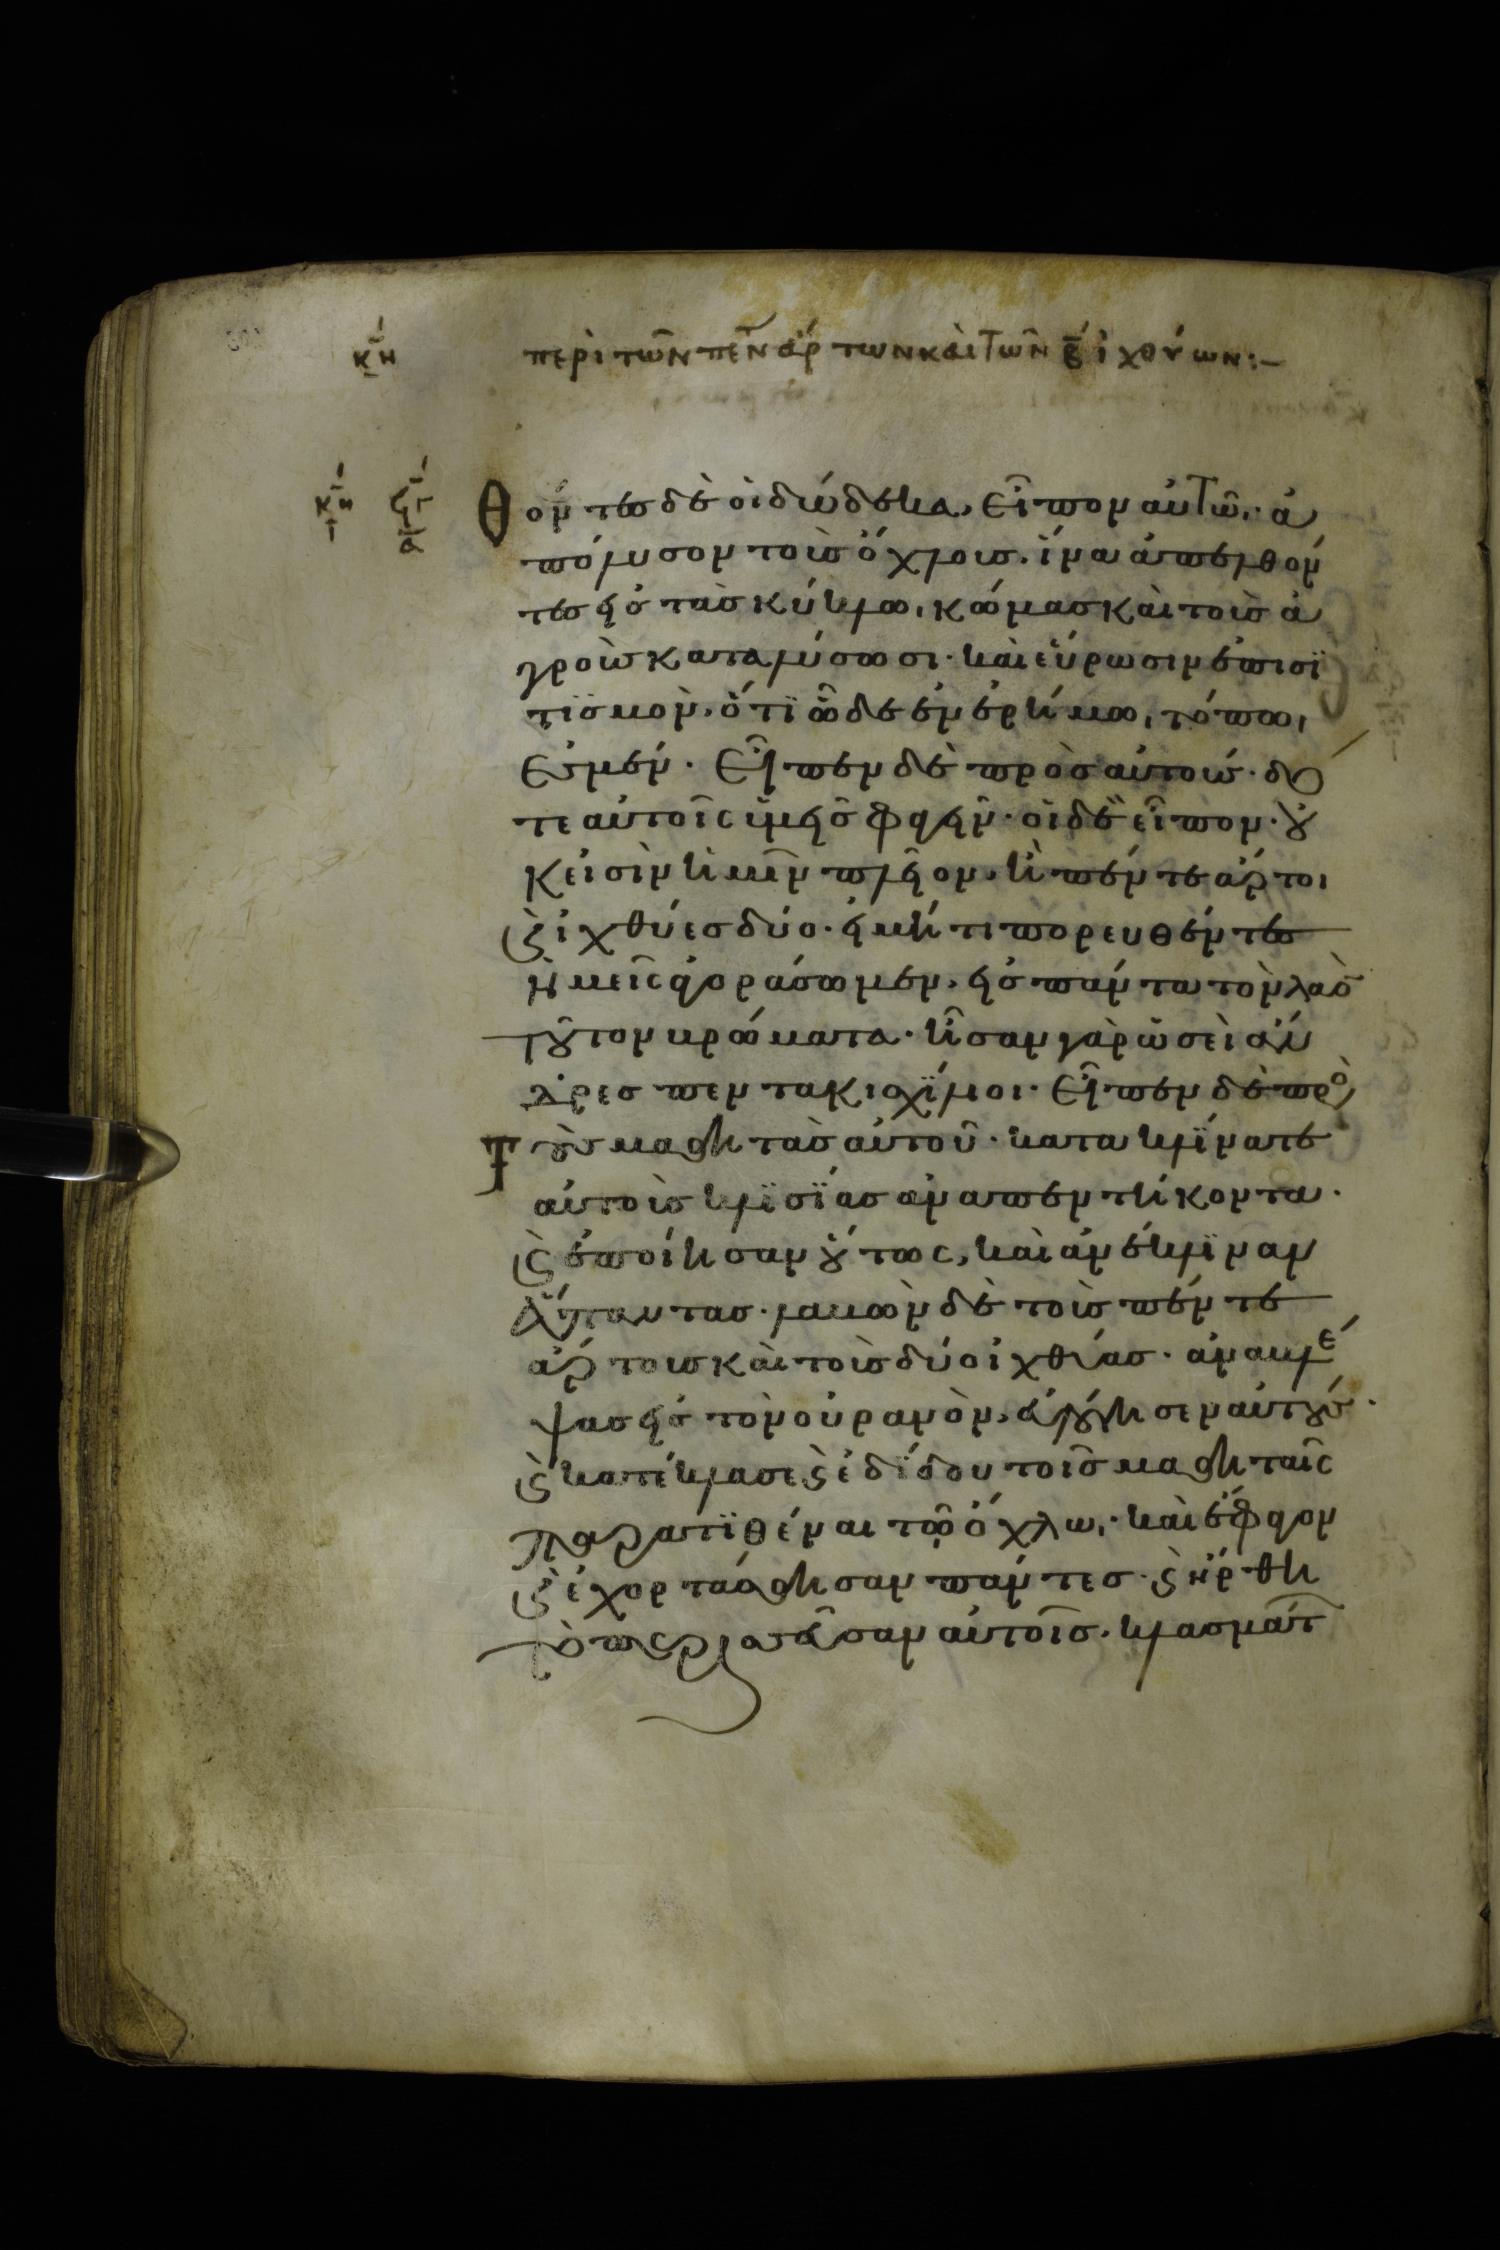 κη περὶ τῶν πεν ἄρτων καὶ τῶν β ἰχθύων:–
θόντες δὲ οἱ δώδεκα, εἶπον αὐτῶ,· ἀ
πόλυσον τοὺς ὄχλους. ἵνα ἀπελθόν
τες εἰς τὰς κύκλω, κώμας καὶ τοὺς ἀ
γροὺς καταλύσωσι· καὶ εὕρωσιν ἐπισϊ
τϊσμὸν, ὅτϊ ὧδε ἐν ἐρήμω, τόπω,
ἐσμέν· εἶπεν δὲ πρὸς αὐτούς· δό
τε αὐτοῖς ὑμεῖς φαγεῖν· οἱ δὲ εἶπον· οὐ
κ εἰσὶν ἡμῖν πλεῖον, ἢ πέντε ἄρτοι
ϛ ἰχθύες δύο· εἰ μή τι πορευθέντες
ἡμεῖς ἀγοράσωμεν, εἰς πάντα τὸν λαὸ
τοῦτον βρώματα· ἦσαν γὰρ ὡσεὶ ἄν
δρες πεντακισχϊλιοι· εἶπεν δὲ πρὸ
τοὺς μαθητὰς αὐτοῦ· κατακλϊνατε
αὐτοὺς κλϊσϊας ἀνα πεντήκοντα·
ϛ ἐποίησαν οὕτως, καὶ ἀνέκλϊναν
ἅπαντας· λαβὼν δὲ τοὺς πέντε
ἄρτους καὶ τοὺς δύο ἰχθύας· ἀναβλέ
ψας εἰς τὸν οὐρανὸν, εὐλόγησεν αὐτούς·
ϛ κατέκλασε ϛ ἐδϊδου τοῖς μαθηταῖς
παρατϊθέναι τῶ ὄχλω,· καὶ ἔφαγον
ϛ ἐχορτάσθησαν πάντες· ϛ ἤρθη
τὸ περισσεῦσαν αὐτοῖς, κλασμάτ